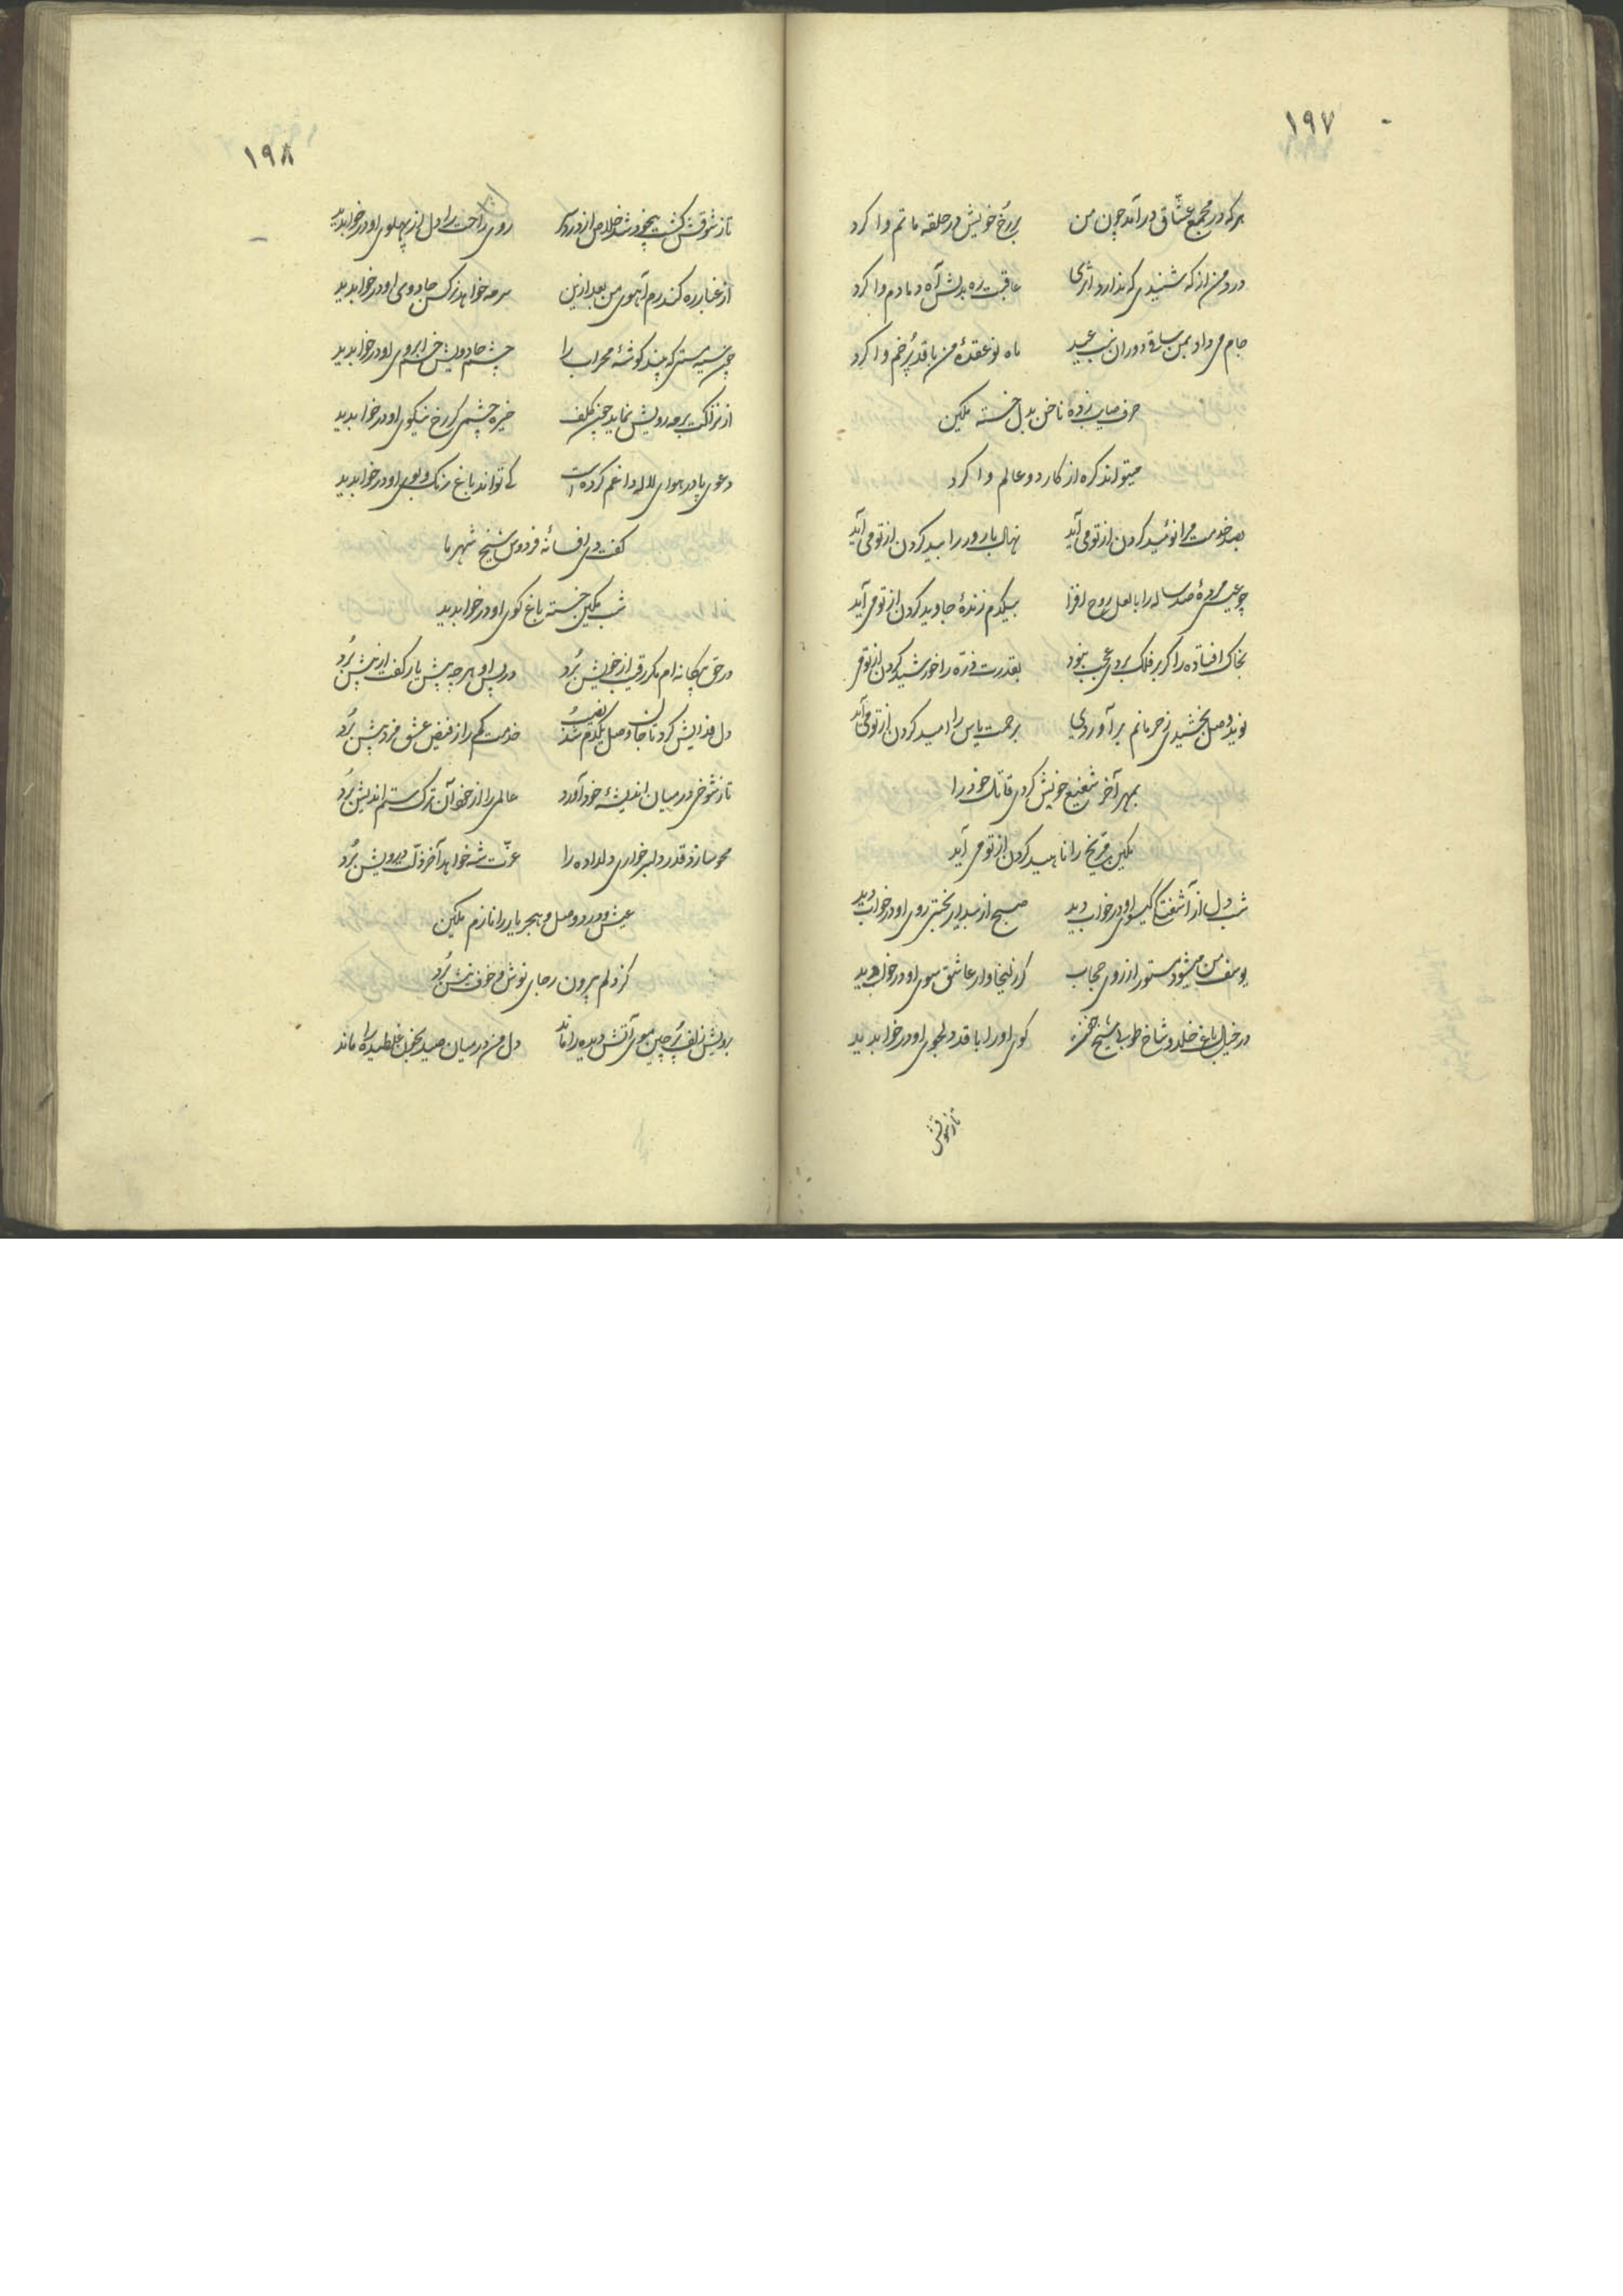 ١٩٧
هرکه در مجمع عشّاق درآمد چون من بر رخ خویش در حلقه ماتم وا کرد
درد من از که شنیدی که ندارد اثری عاقبت ره بدلش آه دمادم وا کرد
جام می داد بمن ساقی دوران شب عید ماه نو عقدهٔ من با قد پُرخم وا کرد
حرف صایب زده ناخن بدل خسته مکین
میتواند کره از کار دو عالم وا کرد
بصد خدمت مرا نومید کردن از تو می آید نهال بارور را بید کردن از تو می آید
چو عیسی مردهٔ صد ساله را با لعل روح افزا بیکدم زندهٔ جاوید کردن از تو می آید
بخاک افتاده را کر بر فلک بردی عجب نبود بقدرت ذرّه را خورشید کردن از تو می
نوید وصل بخشیدی ز حرمانم برآوردی برحمت یاس را امید کردن از تو می آید
بمهر آخر شفیع خویش کردی قاتل خود را
مکین مریخ را ناهید کردن از تو می آید
شب دل از آشفتگی کیسوی او در خواب دید صبح از بیدار بختی روی او در خواب دید
یوسف من میشود مستور از روی حجاب کر زلیخا وار عاشق سوی او در خواب دید
در خیال باغ خلد و شاخ طوبی شیخ کوی او را با قد دلجوی او در خواب دید
تا ز شوقش
١٩٨
تا ز شوقش کشت بیخود شد خلاص از درد روی راحت را دل از پهلوی او در خواب دید
از غبار ره کند رم آهوی من بعد ازین سرمه خواهد نرکس جادوی او در خواب دید
چون سیه مستی که بیند کوشهٔ محراب را چشم جادویش خم ابروی او در خواب دید
از نزاکت بر مه رویش نماید چون کلف خیره چشمی کر رخ نیکوی او در خواب دید
دعوی پا در هوای لاله داغم کرده است کی تواند باغ رنک و بوی او در خواب دید
کفت دی افسانهٔ فردوس شیخ شهر ما
شب مکین خسته باغ کوی او در خواب دید
در حق بیکانه ام مکر رقیب از خویش بُرد در پس او هرچه پیش یار کفت از پیش بُرد
دل فدایش کرد تا جان وصل یکدم شد نصیب خدمت کم را ز فیض عشق مزد بیش بُرد
تا ز شوخی در میان اندیشهٔ خود آورد عالمی را از خود آن ترک ستم اندیش بُرد
محو سازد قدر دلبر خواری دلداده را عزّت شه خواهد آخر ذلّت درویش بُرد
عیش و درد وصل و هجر یار را نازم مکین
کز دلم بیرون رجای نوش و خوف نیش بُرد
برویش زلف پُر چین موی آتش دیده را ماند دل من در میان صید بخون غلطیده را ماند